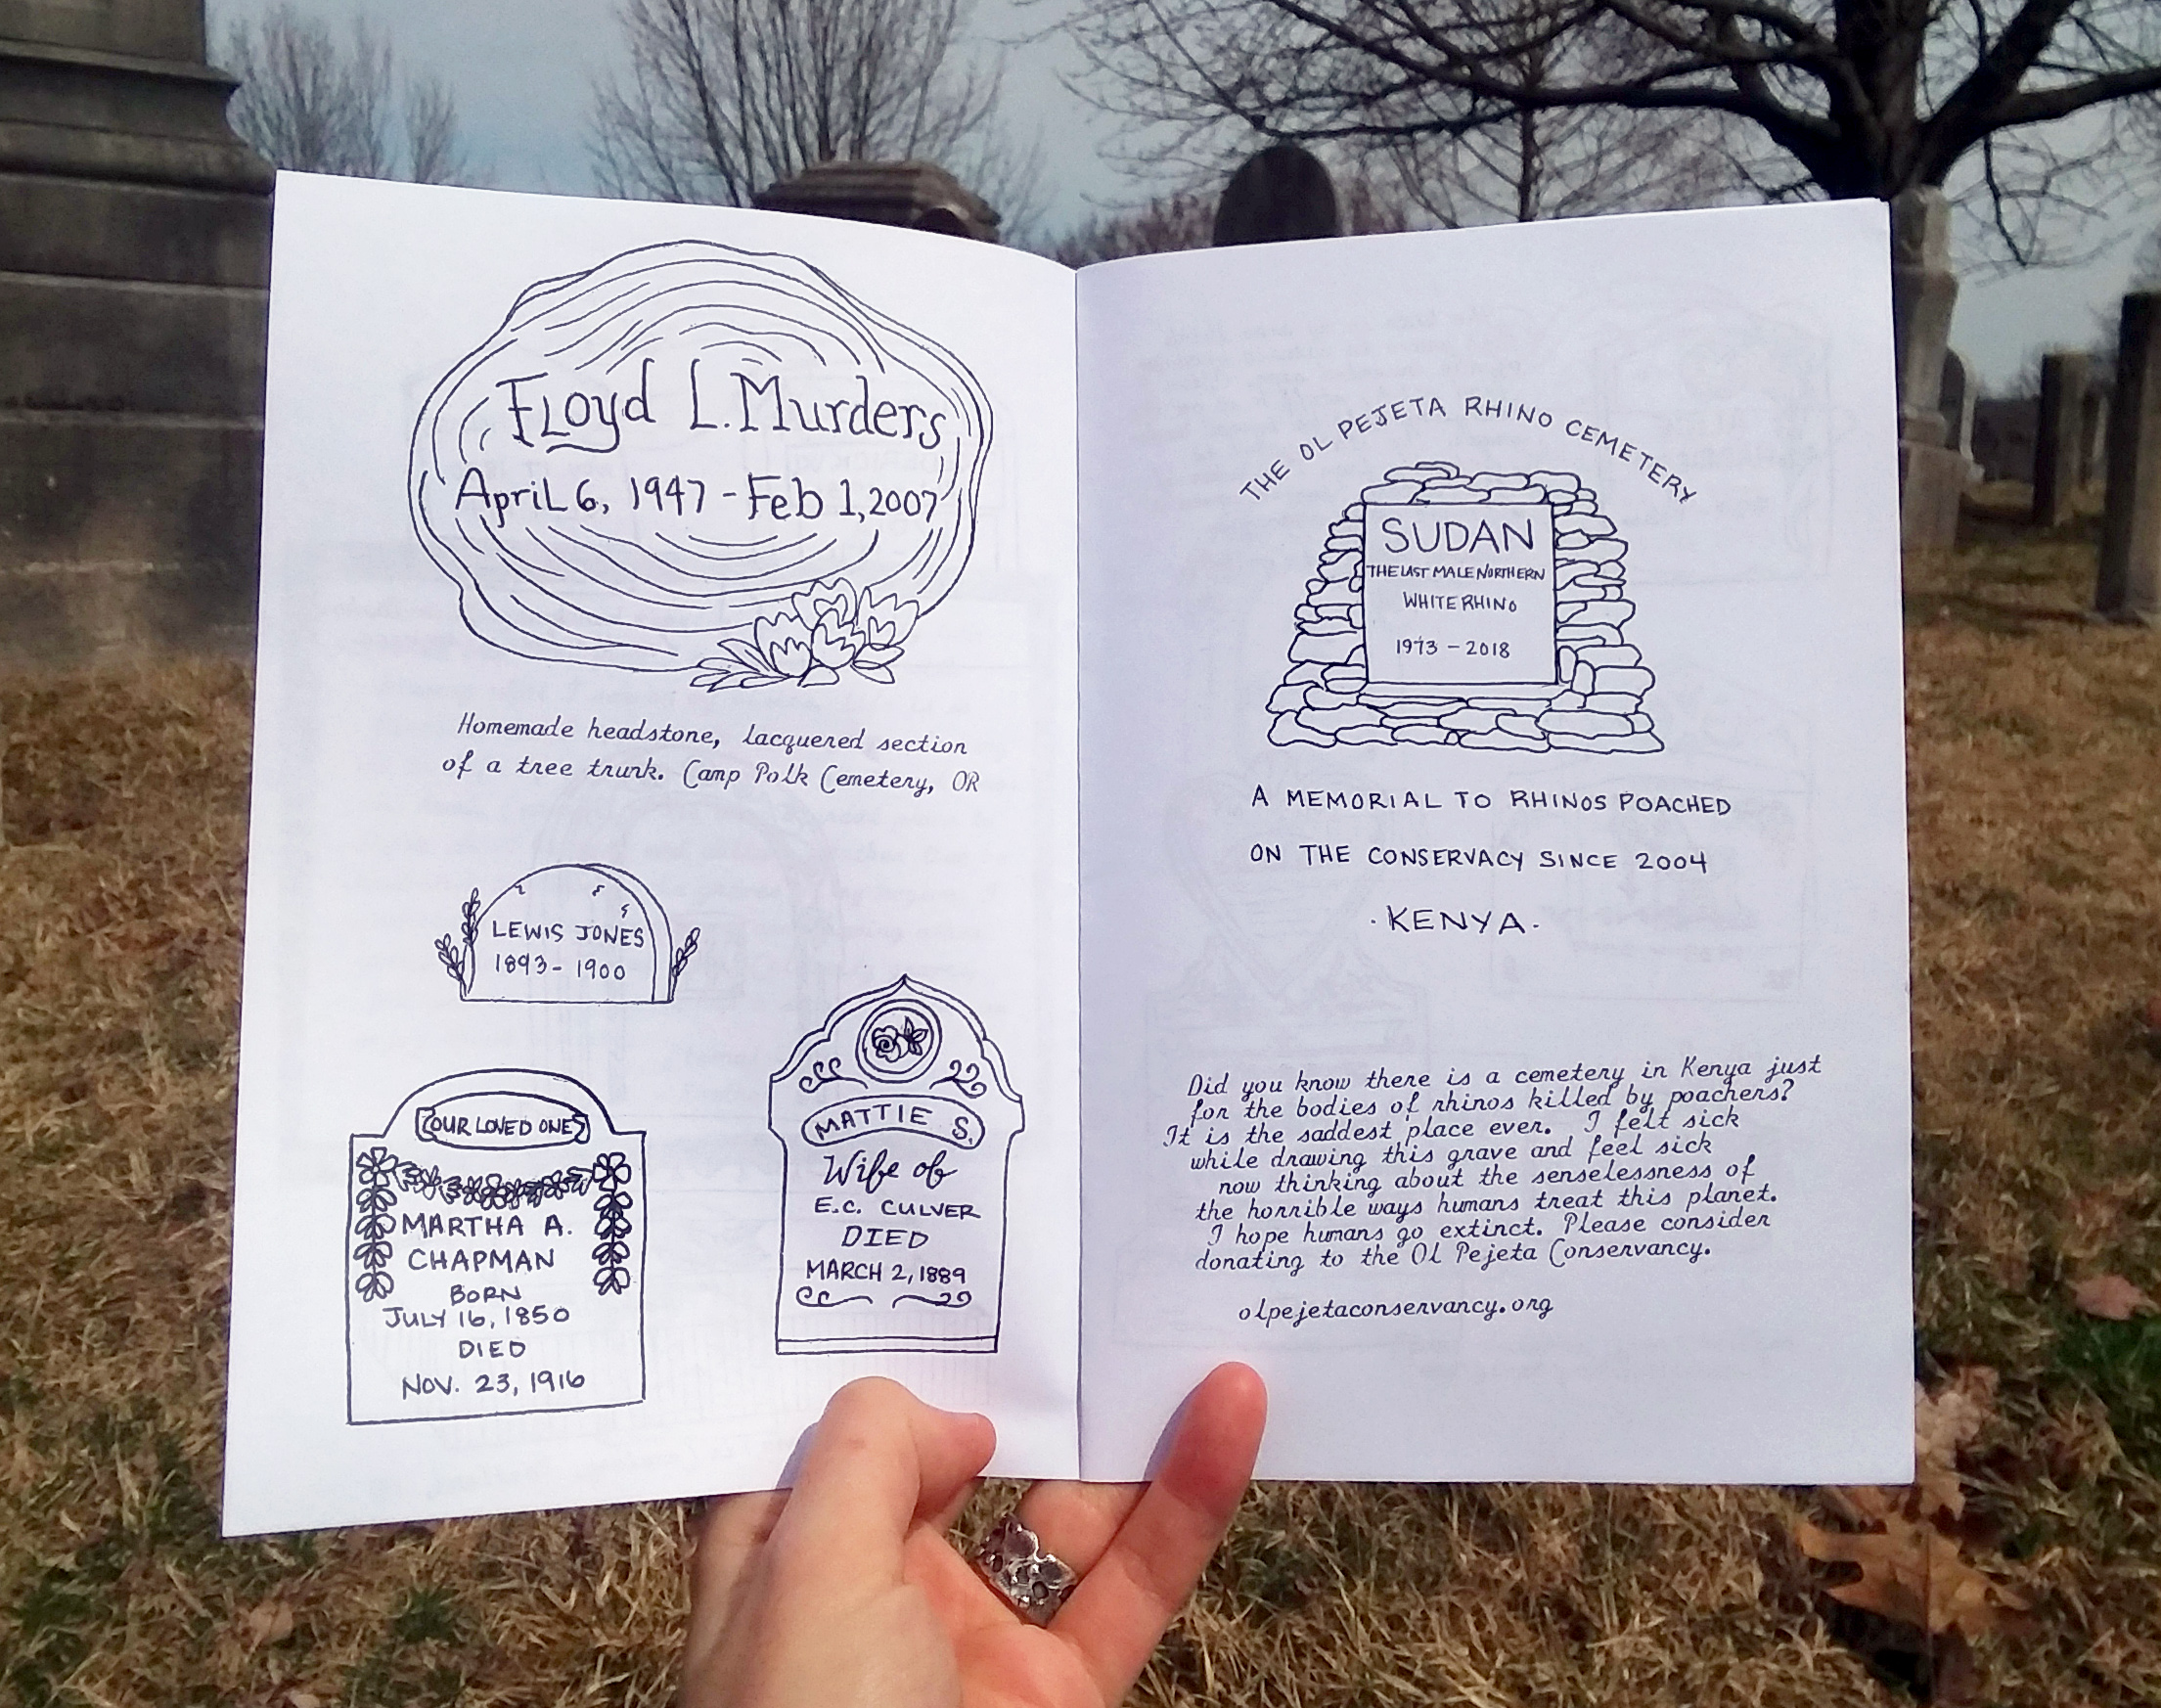 Floyd L. Murders
April 6, 1947 - Feb 1, 2007
Homemade headstone, lacquered section
of a tree trunk. Camp Polk Cemetery, OR
LEWIS JONES
1893 - 1900
OUR LOVED ONE
MARTHA A.
CHAPMAN
BORN
JULY 16, 1850
DIED
NOV. 23, 1916
MATTIE S.
Wife of
E.C. CULVER
DIED
MARCH 2, 1889
THE OL PEJETA RHINO CEMETERY
SUDAN
THE LAST MALE NORTHERN
WHITE RHINO
1973 - 2018
A MEMORIAL TO RHINOS POACHED
ON THE CONSERVACY SINCE 2004
·KENYA·
Did you know there is a cemetery in Kenya just
for the bodies of rhinos killed by poachers?
It is the saddest place ever. I felt sick
while drawing this grave and feel sick
now thinking about the senselessness of
the horrible ways humans treat this planet.
I hope humans go extinct. Please consider
donating to the Ol Pejeta Conservancy.
olpejetaconservancy.org